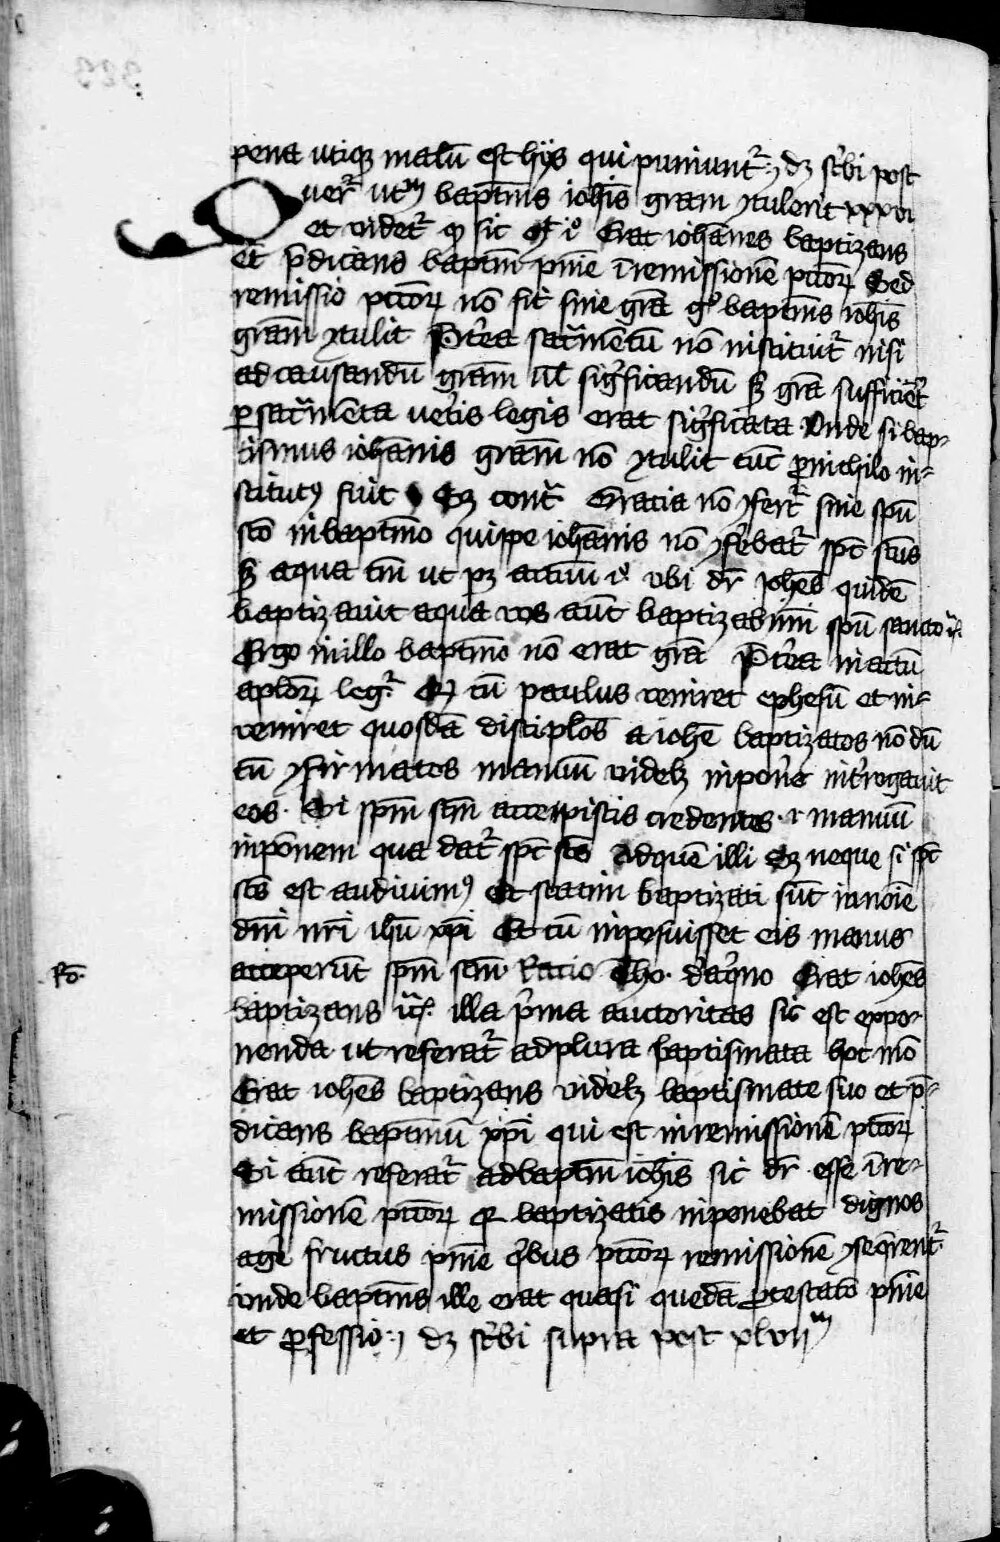 pena utiqꝫ malū est hijs qui puniunt᷑ dꝫ scͥbi post
Quer᷑ utͫ baptm̄s ioh̄is gr̄am ꝯtulerit xxxvi
et videt᷑ ꝙ sic Erat ioh̄anes baptizans
et p̄dicans baptm̄ pn̄ie ī remissionē pctōꝝ Sed
remissio pctōꝝ nō fit sine gr̄a gͦ baptm̄s ioh̄is
gr̄am ꝯtulit Pret̄ea sacr̄mentū nō instituit᷑ nisi
ad causandū gr̄am ul̄ significandū sꝫ gr̄a sufficient̄
ꝑ sacr̄menta vet̄is legis erat significata Unde si bap-
tismus ioh̄anis gr̄am nō ꝯtulit tūc pro nichilo in-
stitutꝰ fuit Sꝫ cont᷑ Gracia nō ꝯfert᷑ sine spū
scō in baptm̄o quippe ioh̄annis nō ꝯferebat᷑ spc̄ scūs
sꝫ aqua tm̄ ut pꝫ actuū iͦ ubi dr̄ Joh̄es quidē
baptizavit aqua vos aūt baptizabimi᷑ spū sancto
Ergo in illo baptm̄o nō erat gr̄a Pret̄ea in actū
aplōꝝ leg᷑ ꝙ cū paulus veniret ephesū et in-
veniret quosdā discipl̄os a ioh̄e baptizatos nō dū
tū ꝯfirmatos manuū videlꝫ inpon̄e int̄rogavit
eos. Si spm̄ scm̄ accepistis credentes .i. manuū
inpōnem qua dat᷑ spc̄ scs̄ Ad quē illi Sꝫ neque si spc̄
scs̄ est audivimꝰ Et statim baptizati sūt in noīe
dn̄i nr̄i ih̄u xp̄i Et cū inposuisset eis manus
acceperūt spm̄ scm̄ Racio Tho. Erat ioh̄es
Rō.
baptizans illa p̄ma auctoritas sic est expo-
nenda ut referat᷑ ad plura baptismata hoc mō
Erat ioh̄es baptizans videlꝫ baptismate suo et p̄-
dicans baptm̄ū xp̄i qui est in remissionē pctōꝝ
Si aūt referat᷑ ad baptm̄ ioh̄is sic dr̄ esse ī re-
missionē pctōꝝ baptizatis inponebat dignos
age̅ fructus pn̄ie qͥbus pctōꝝ remissionē ꝯseqrent᷑
unde baptm̄s ille erat quasi quedā ꝓtestatō pn̄ie
et ꝓfessio dꝫ scͥbi supra post xlviiͫ